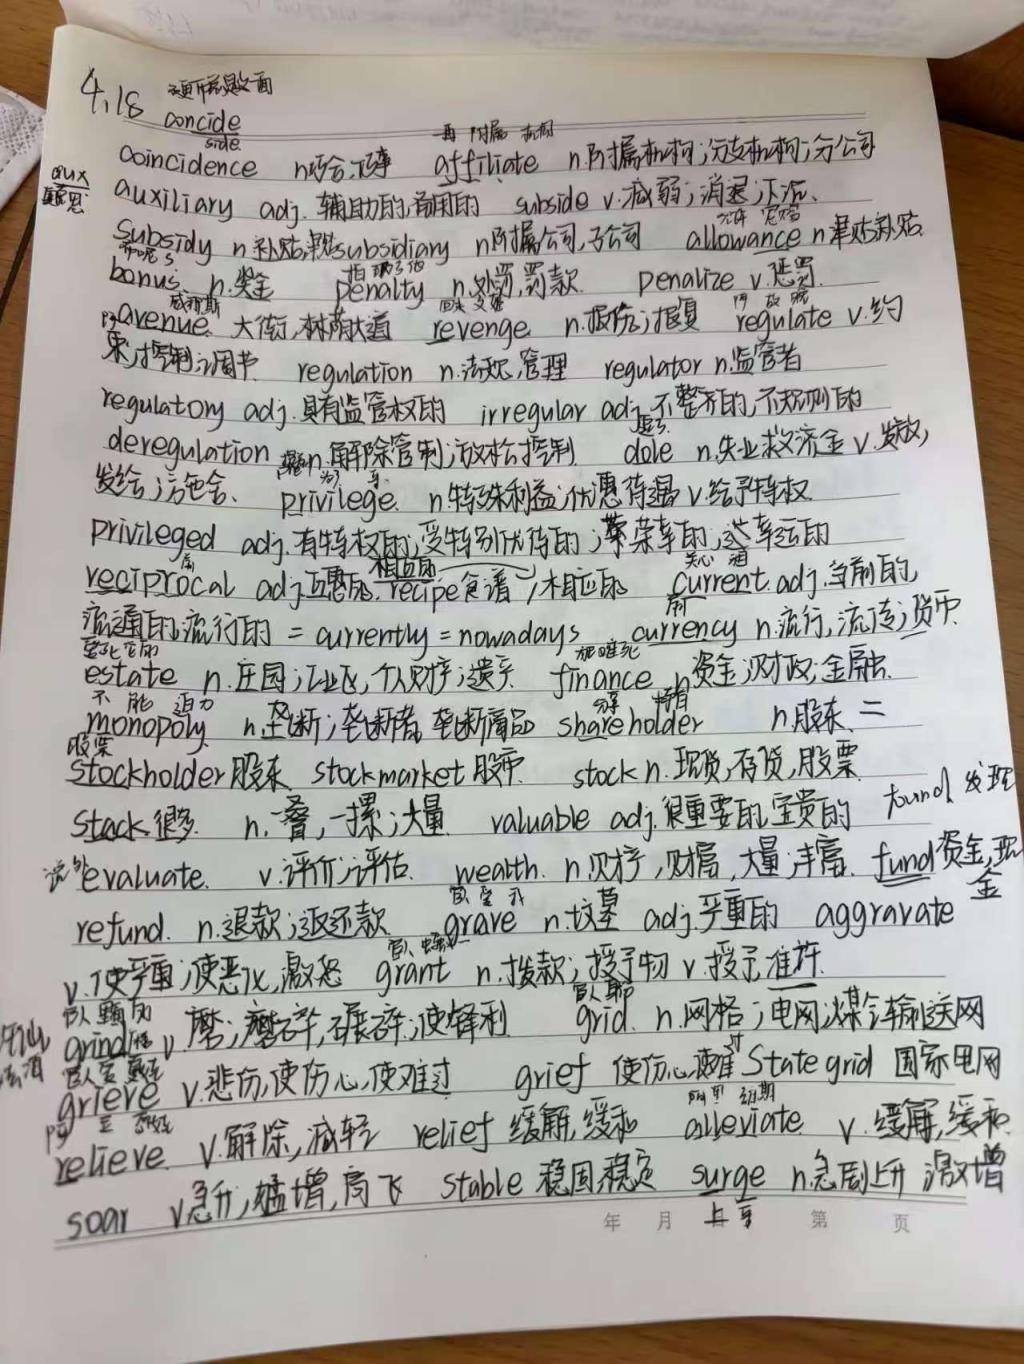 4.18 硬币是面
concide
side
coincidence n.巧合; 再 附属 机构 affiliate n.附属机构;分支机构;分公司
aux auxiliary adj.辅助的,备用的 subside v.减弱;消退;下沉.
subsidy n.补贴,津贴 subsidiary n.附属公司,子公司 allowance n.津贴补贴
bonus. n.奖金 penalty n.处罚,罚款. penalize v.惩罚
威那斯
avenue. 大街,林荫大道 revenge n.报仇;报复 regulate v.约
束;控制;调节 regulation n.法规,管理 regulator n.监管者
regulatory adj.具有监管权的 irregular adj.不整齐的,不规则的
deregulation n.解除管制;放松控制 dole n.失业救济金 v.发放,
发给;施舍. privilege. n.特殊利益;优惠待遇 v.给予特权.
privileged adj.有特权的;受特别优待的;荣幸的;幸运的
相应的
reciprocal adj.互惠的. recipe食谱 相应的 current.adj.当前的,
流通的,流行的 = currently = nowadays currency n.流行,流传;货币
estate n.庄园;工业区,个人财产;遗产 finance n.资金;财政;金融.
不 能 迫力 分享 持有
monopoly. n.垄断;垄断者,垄断商品 shareholder n.股东 =
股票
stockholder股东 stockmarket股市. stock n.现货,存货,股票
stack.很多 n.一叠,一摞;大量 valuable adj.很重要的,宝贵的 found 发现
evaluate. v.评价;评估. wealth. n.财产,财富,大量;丰富. fund资金,现金
refund. n.退款;返还款 grave n.坟墓 adj.严重的 aggravate
v.使严重;使恶化,激怒 grant n.拨款;授予物 v.授予,准许.
grind v.磨;磨碎,碾碎;使锋利 grid. n.网格;电网;煤气输送网
grieve v.悲伤,使伤心,使难过 grief 使伤心,使难过 State grid 国家电网
relieve. v.解除,减轻 relief 缓解,缓和 alleviate v.缓解,缓和.
soar v.急升;猛增,高飞 stable 稳固,稳定 surge n.急剧上升 激增
年 月 上 第 页